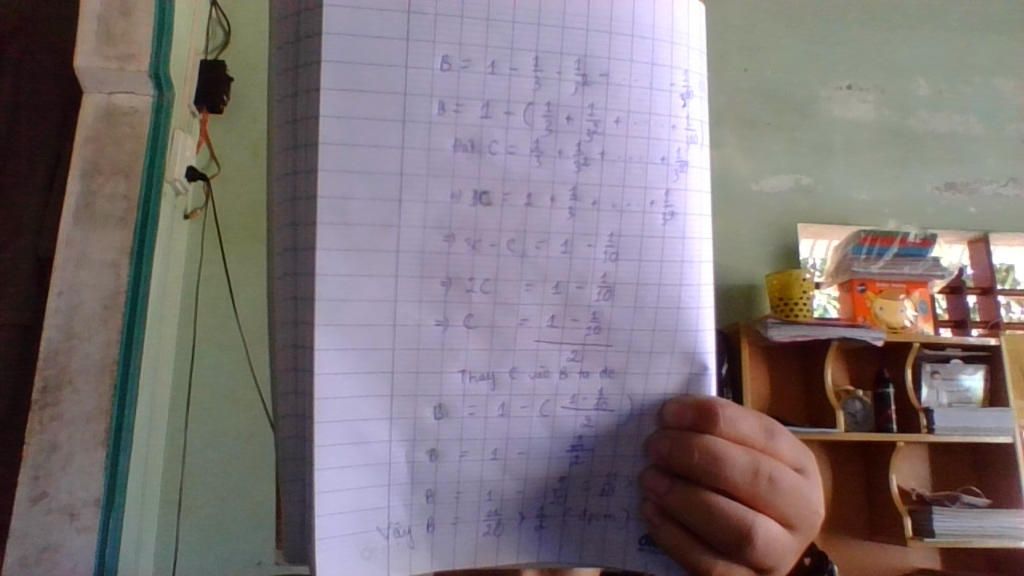 B = 1 - 1/3 - 1/3² - ... - 1/3
B = 1 - ( 1/3 + 1/3² + ... + 1/3 )
C = 1/3 + 1/3² + ... + 1/3
⇒ 3C = 1 + 1/3 + ... + 1/3
⇒ 3C - C = 1 - 1/10
⇒ 2C = 1 - 1/10
⇒ C = (1 - 1/10)/2
Thay C vào B ta đc
B = 1 - ( (1 - 1/10)/2 )
B = 1 -
B = 1 -
Vậy B = 11/20 > 1/2 (đpcm)